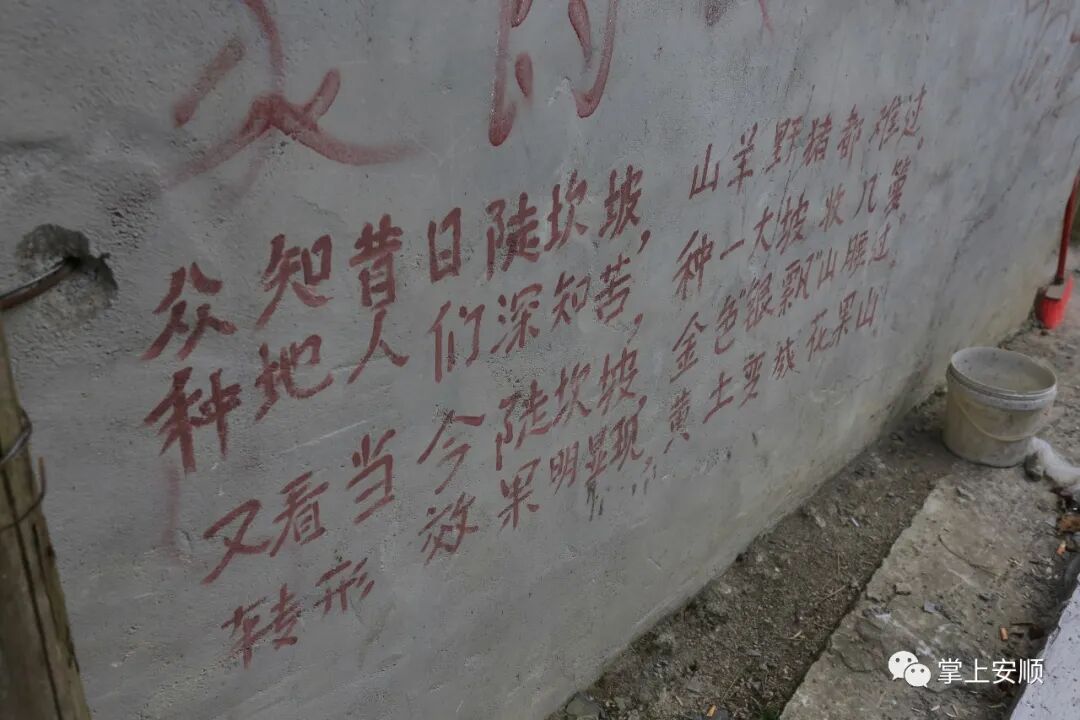 众知昔日陡坎坡，山羊野猪都难过。
种地人们深知苦，种一大坡收几箩。
又看当今陡坎坡，金色“银飘”山腰过，
转形效果明显现，黄土变成花果山
掌上安顺